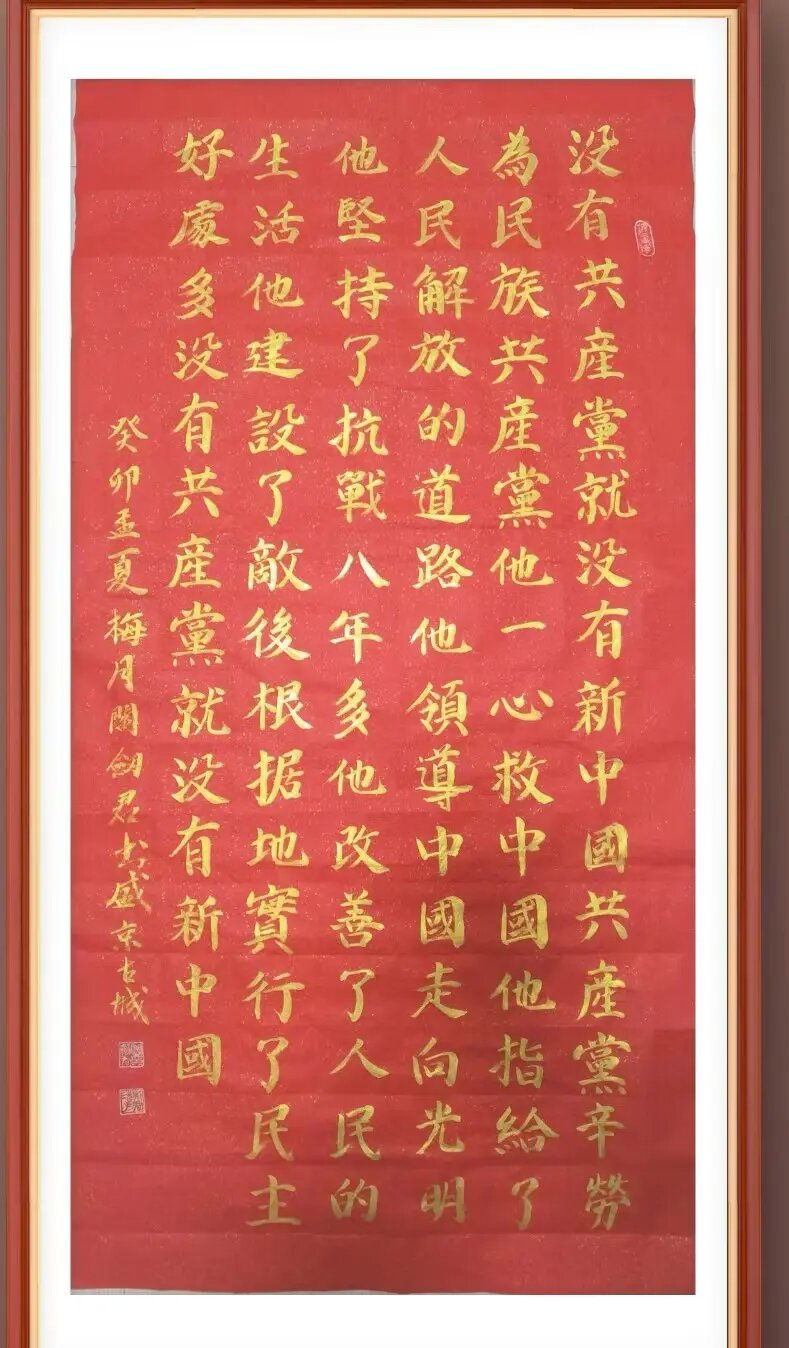 没有共產黨就没有新中國共產黨辛勞
為民族共產黨他一心救中國他指給了
人民解放的道路他領導中國走向光明
他堅持了抗戰八年多他改善了人民的
生活他建設了敵後根据地實行了民主
好處多没有共產黨就没有新中國
癸卯孟夏梅月關劍君书盛京古城